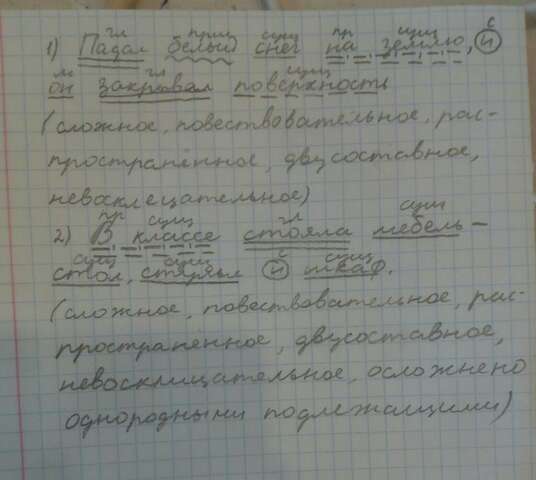 гл прищ сущ пр сущ с
1) Падал белый снег на землю, и
м гл сущ
он закрывал поверхность
(сложное, повествовательное, рас-
пространённое, двусоставное,
невосклецательное)
пр сущ гл сущ
2) В классе стояла мебель -
сущ сущ с сущ
стол, стулья и шкаф.
(сложное, повествовательное, рас-
пространенное, двусоставное,
невосклицательное, осложнено
однородными подлежащими)